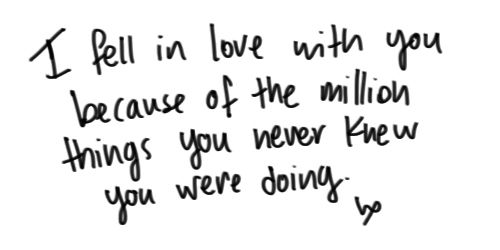 I fell in love with you
because of the million
things you never knew
you were doing.